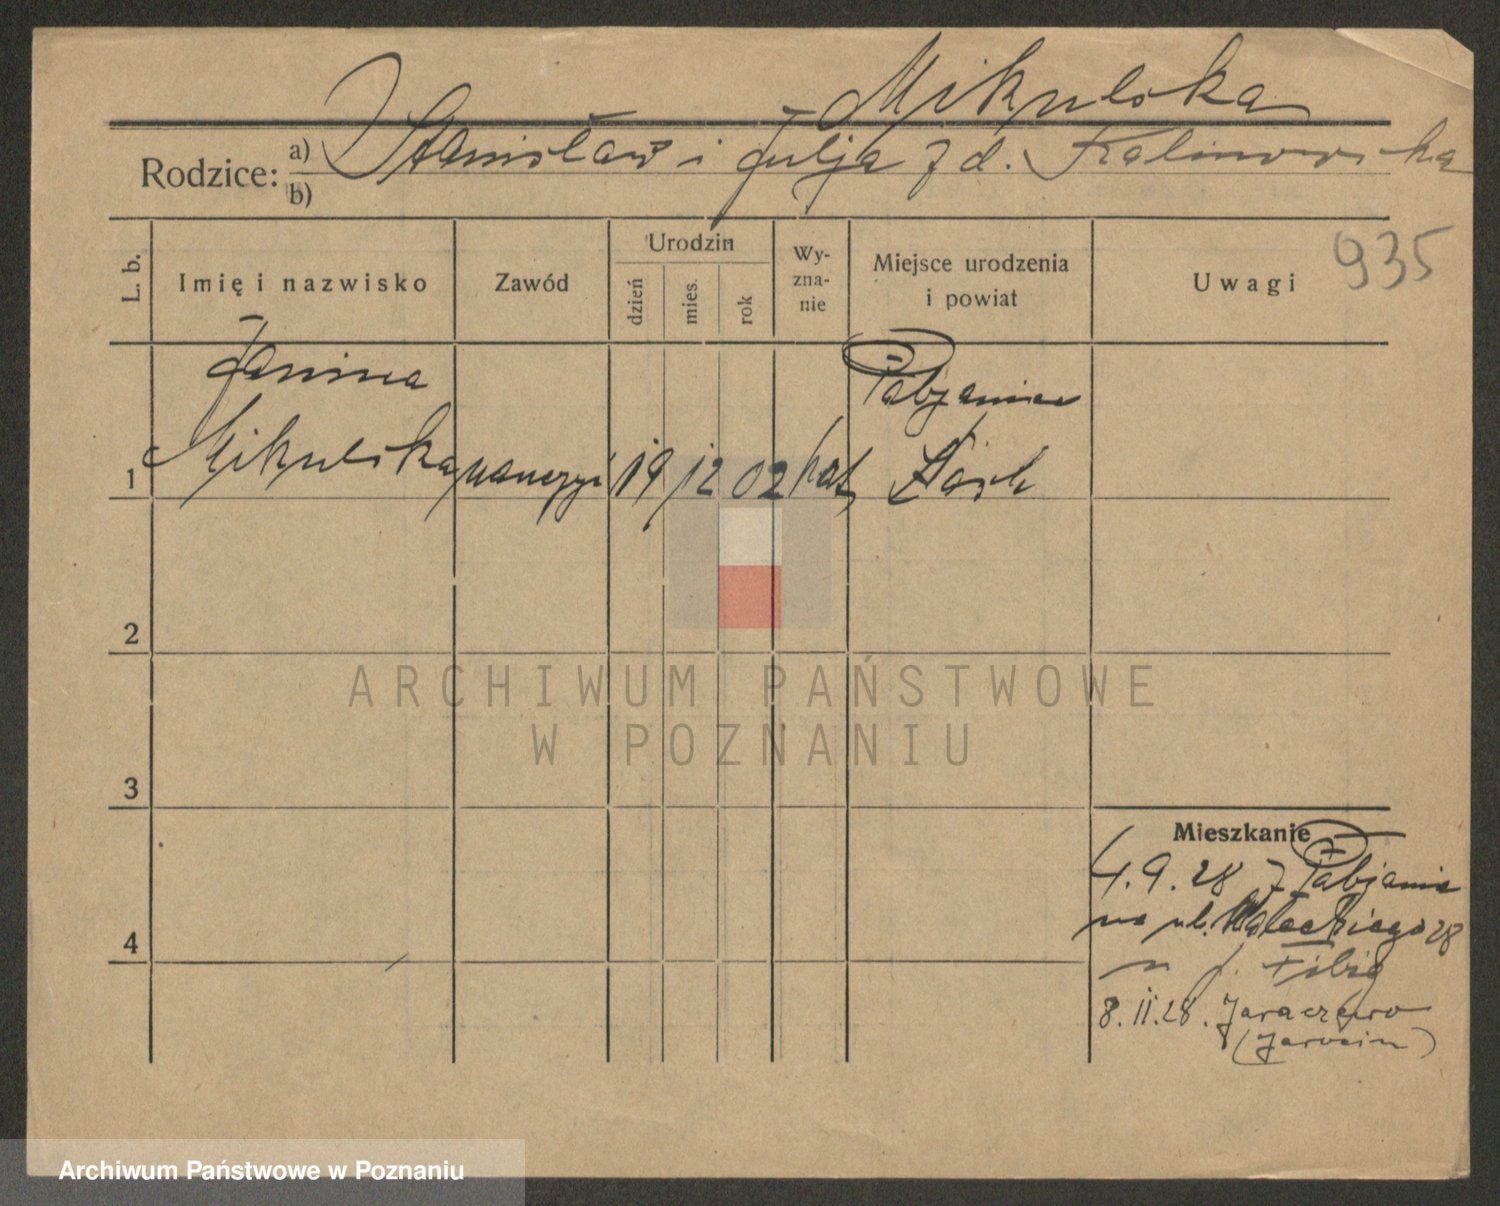 Mikulska
Rodzice: a) Stanisław i Julja z d. Kalinowska
b)
935
L. b.
Imię i nazwisko
Zawód
Urodzin
dzień
mies.
rok
Wy-
zna-
nie
Miejsce urodzenia
i powiat
Uwagi
Janina
Mikulska
1
19 12 02 kat.
Pabjanice
Łask
2
3
4
Mieszkanie
4.9.28 z Pabjanic
na ul. Małeckiego 28
8.11.28. Jaraczewo
(Jarocin)
ARCHIWUM PAŃSTWOWE
W POZNANIU
Archiwum Państwowe w Poznaniu